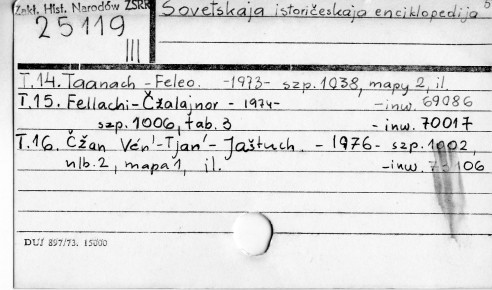 Zakł. Hist. Narodów ZSRR
Sovetskaja istoričeskaja enciklopedija 5
25119
III
T.14. Taanach – Feleo. -1973- szp. 1038, mapy 2, il.
T.15. Fellachi – Čžalajnor - 1974- -inw. 69086
szp. 1006, tab. 3 -inw. 70017
T.16. Čžan Vén'-Tjan' - Jaštuch. - 1976- szp. 1002,
nlb. 2, mapa 1, il. -inw.
DUJ 897/73. 15000